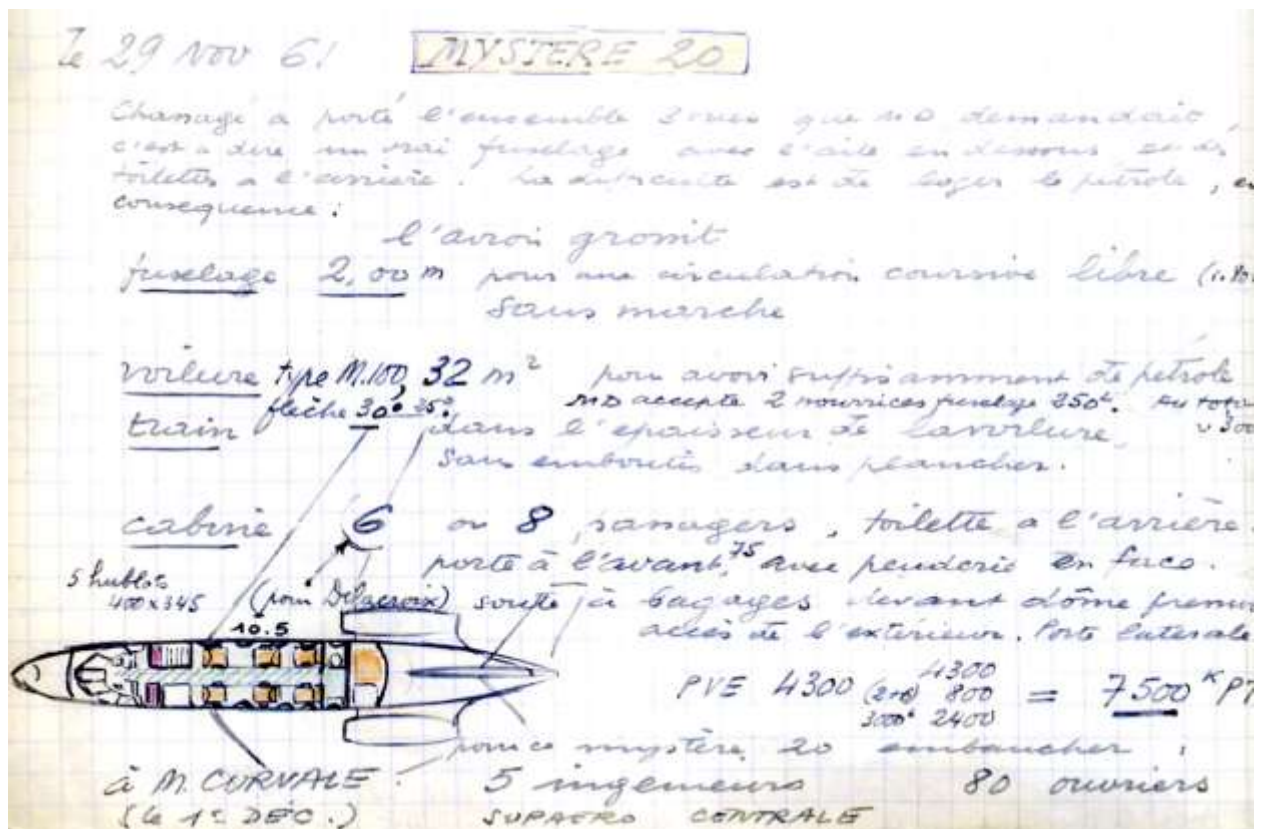 le 29 nov 61 MYSTERE 20
Chassagé a porté l'ensemble 3 vues que MD demandait,
c'est a dire un vrai fuselage avec l'aile en dessous et des
toilettes a l'arrière. La difficulté est de loger le pétrole, en
consequence :
l'avion grossit
fuselage 2,00 m pour une circulation coursive libre (1.80
sans marche
voilure type M.100, 32 m² pour avoir suffisamment de pétrole
flèche 30° 25°. MD accepte 2 nourrices fuselage 250ˡ. Au total
train dans l'epaisseur de la voilure,
sans emboutis dans plancher.
cabine 6 ou 8 passagers, toilette a l'arrière.
porte à l'avant, 75 avec penderie en face.
5 hublots
400 x 345 (pour Delacroix) soute à bagages devant dôme
10.5 accès de l'extérieur. Porte laterale
4300
PVE 4300 (2+8) 800 = 7500 K
3000ˡ 2400
pour ce mystère 20 embaucher :
à M. CORVALE 5 ingenieurs 80 ouvriers
(le 1er DÉC.) SUPAERO CENTRALE